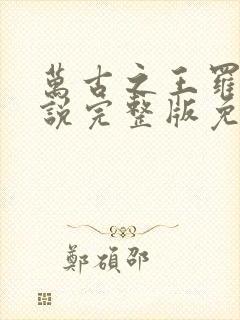 萬古之王羅
說完整版免
鄭碩邵